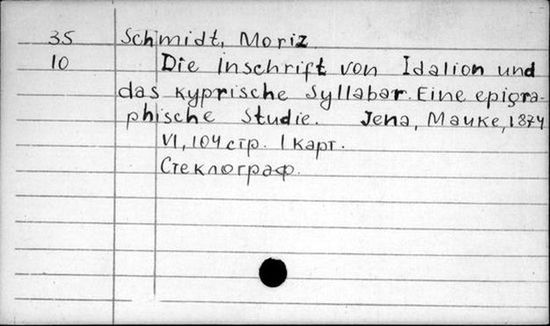 35 Schmidt, Moriz
10 Die Inschrift von Idalion und
das kyprische Syllabar. Eine epigra-
phische Studie. Jena, Mauke, 1874
VI, 104 стр. 1 карт.
Стеклограф.